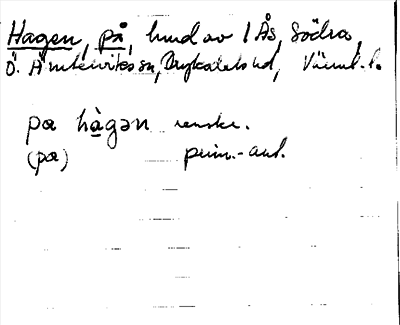 Hagen, på, hmd av 1 Ås, Södra,
Ö. Ämterviks sn, Fryksdals hd, Värml. l.
pa hàgən
(pa)